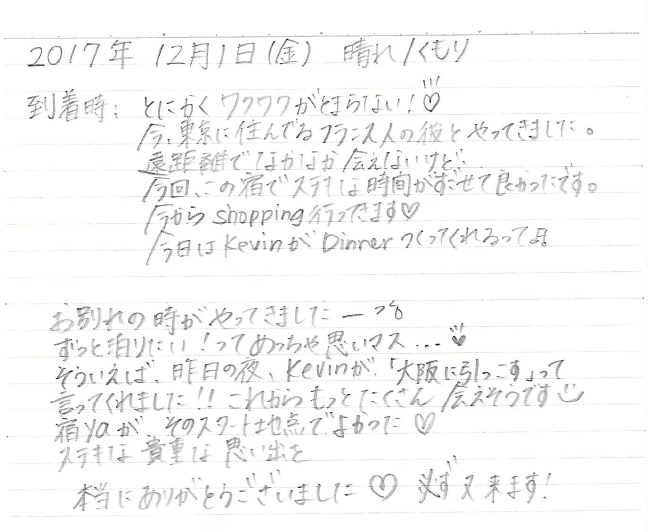 2017年 12月1日(金) 晴れ/くもり
到着時: とにかく ワクワクがとまらない!♡
今、東京に住んでるフランス人の彼とやってきました。
遠距離でなかなか会えないけど…
今回、この宿でステキな時間がすごせて良かったです。
今から shopping 行ってきます♡
今日は Kevinが Dinner つくってくれるって♫
お別れの時がやってきましたー
ずっと泊りたい!ってめっちゃ思いマス...♡
そういえば、昨日の夜、Kevinが、「大阪に引っこす」って
言ってくれました!! これからもっとたくさん 会えそうです
宿yaが、そのスタート地点でよかった♡
ステキな貴重な思い出を
本当にありがとうございました♡ 必ず又来ます!